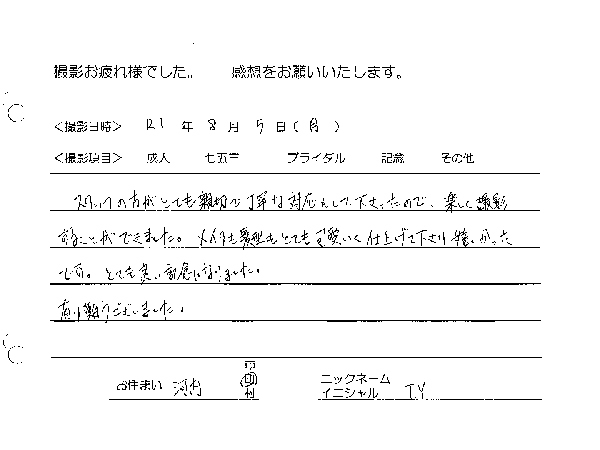 撮影お疲れ様でした。 感想をお願いいたします。
<撮影日時> R1 年 8 月 5 日(月)
<撮影項目> 成人 七五三 ブライダル 記念 その他
スタッフの方がとても親切で丁寧な対応をして下さったので、楽しく撮影
することができました。メイクも髪型もとても可愛いく仕上げて下さり嬉しかった
です。とても良い記念になりました。
有り難うございました。
お住まい 河内 市 町 村
ニックネーム
イニシャル T.Y